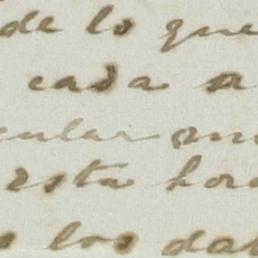 de lo que
cada a
cular
esta hora
los dat